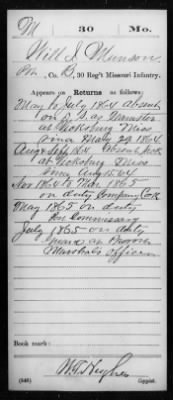 M 30 Mo.
Will J. Munson
Co. B, 30 Reg't Missouri Infantry.
Appears on Returns as follows:
May to July 1864 absent
on D. S. as Teamster
at Vicksburg Miss
since May 29 1864.
Aug & Sept 1864 absent sick
at Vicksburg Miss
since Aug 15 64
Nov 1864 to Mar 1865
on duty Company Cook
May 1865 on duty
Commissary
July 1865 on duty
as Provost
Marshals Office
Book mark:
(546)
Copyist.